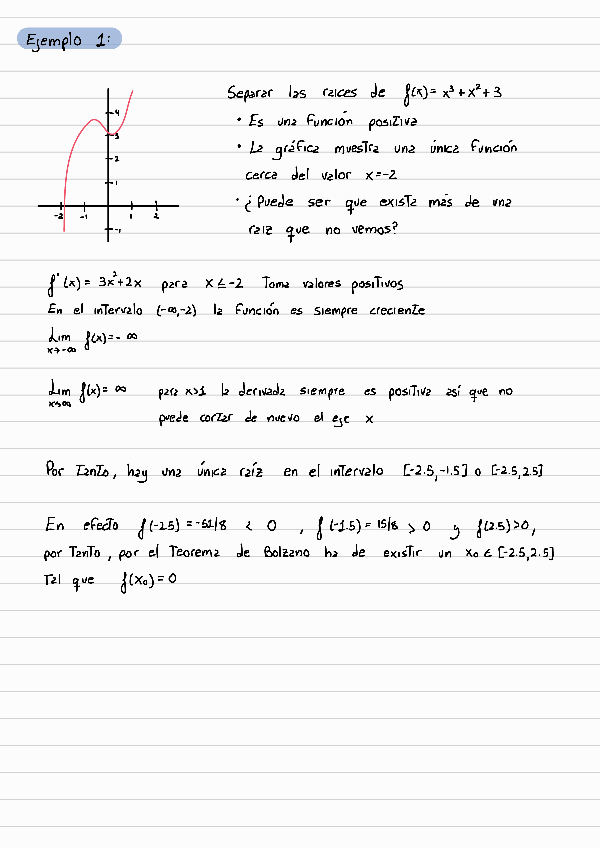 Ejemplo 1:
Separar las raíces de f(x) = x³ + x² + 3
• Es una función positiva
• La gráfica muestra una única función
cerca del valor x=-2
• ¿Puede ser que exista más de una
raíz que no vemos?
4
3
2
1
-2 -1 1 2
-1
f'(x) = 3x²+2x para x ≤ -2 Toma valores positivos
En el intervalo (-∞,-2) la función es siempre creciente
Lim f(x) = - ∞
x→-∞
Lim f(x) = ∞ para x>1 la derivada siempre es positiva así que no
x→∞
puede cortar de nuevo el eje x
Por tanto, hay una única raíz en el intervalo [-2.5,-1.5] o [-2.5,2.5]
En efecto f(-2.5) = -51/8 < 0 , f(-1.5) = 15/8 > 0 y f(2.5)>0,
por tanto, por el Teorema de Bolzano ha de existir un x₀ ∈ [-2.5,2.5]
Tal que f(x₀) = 0